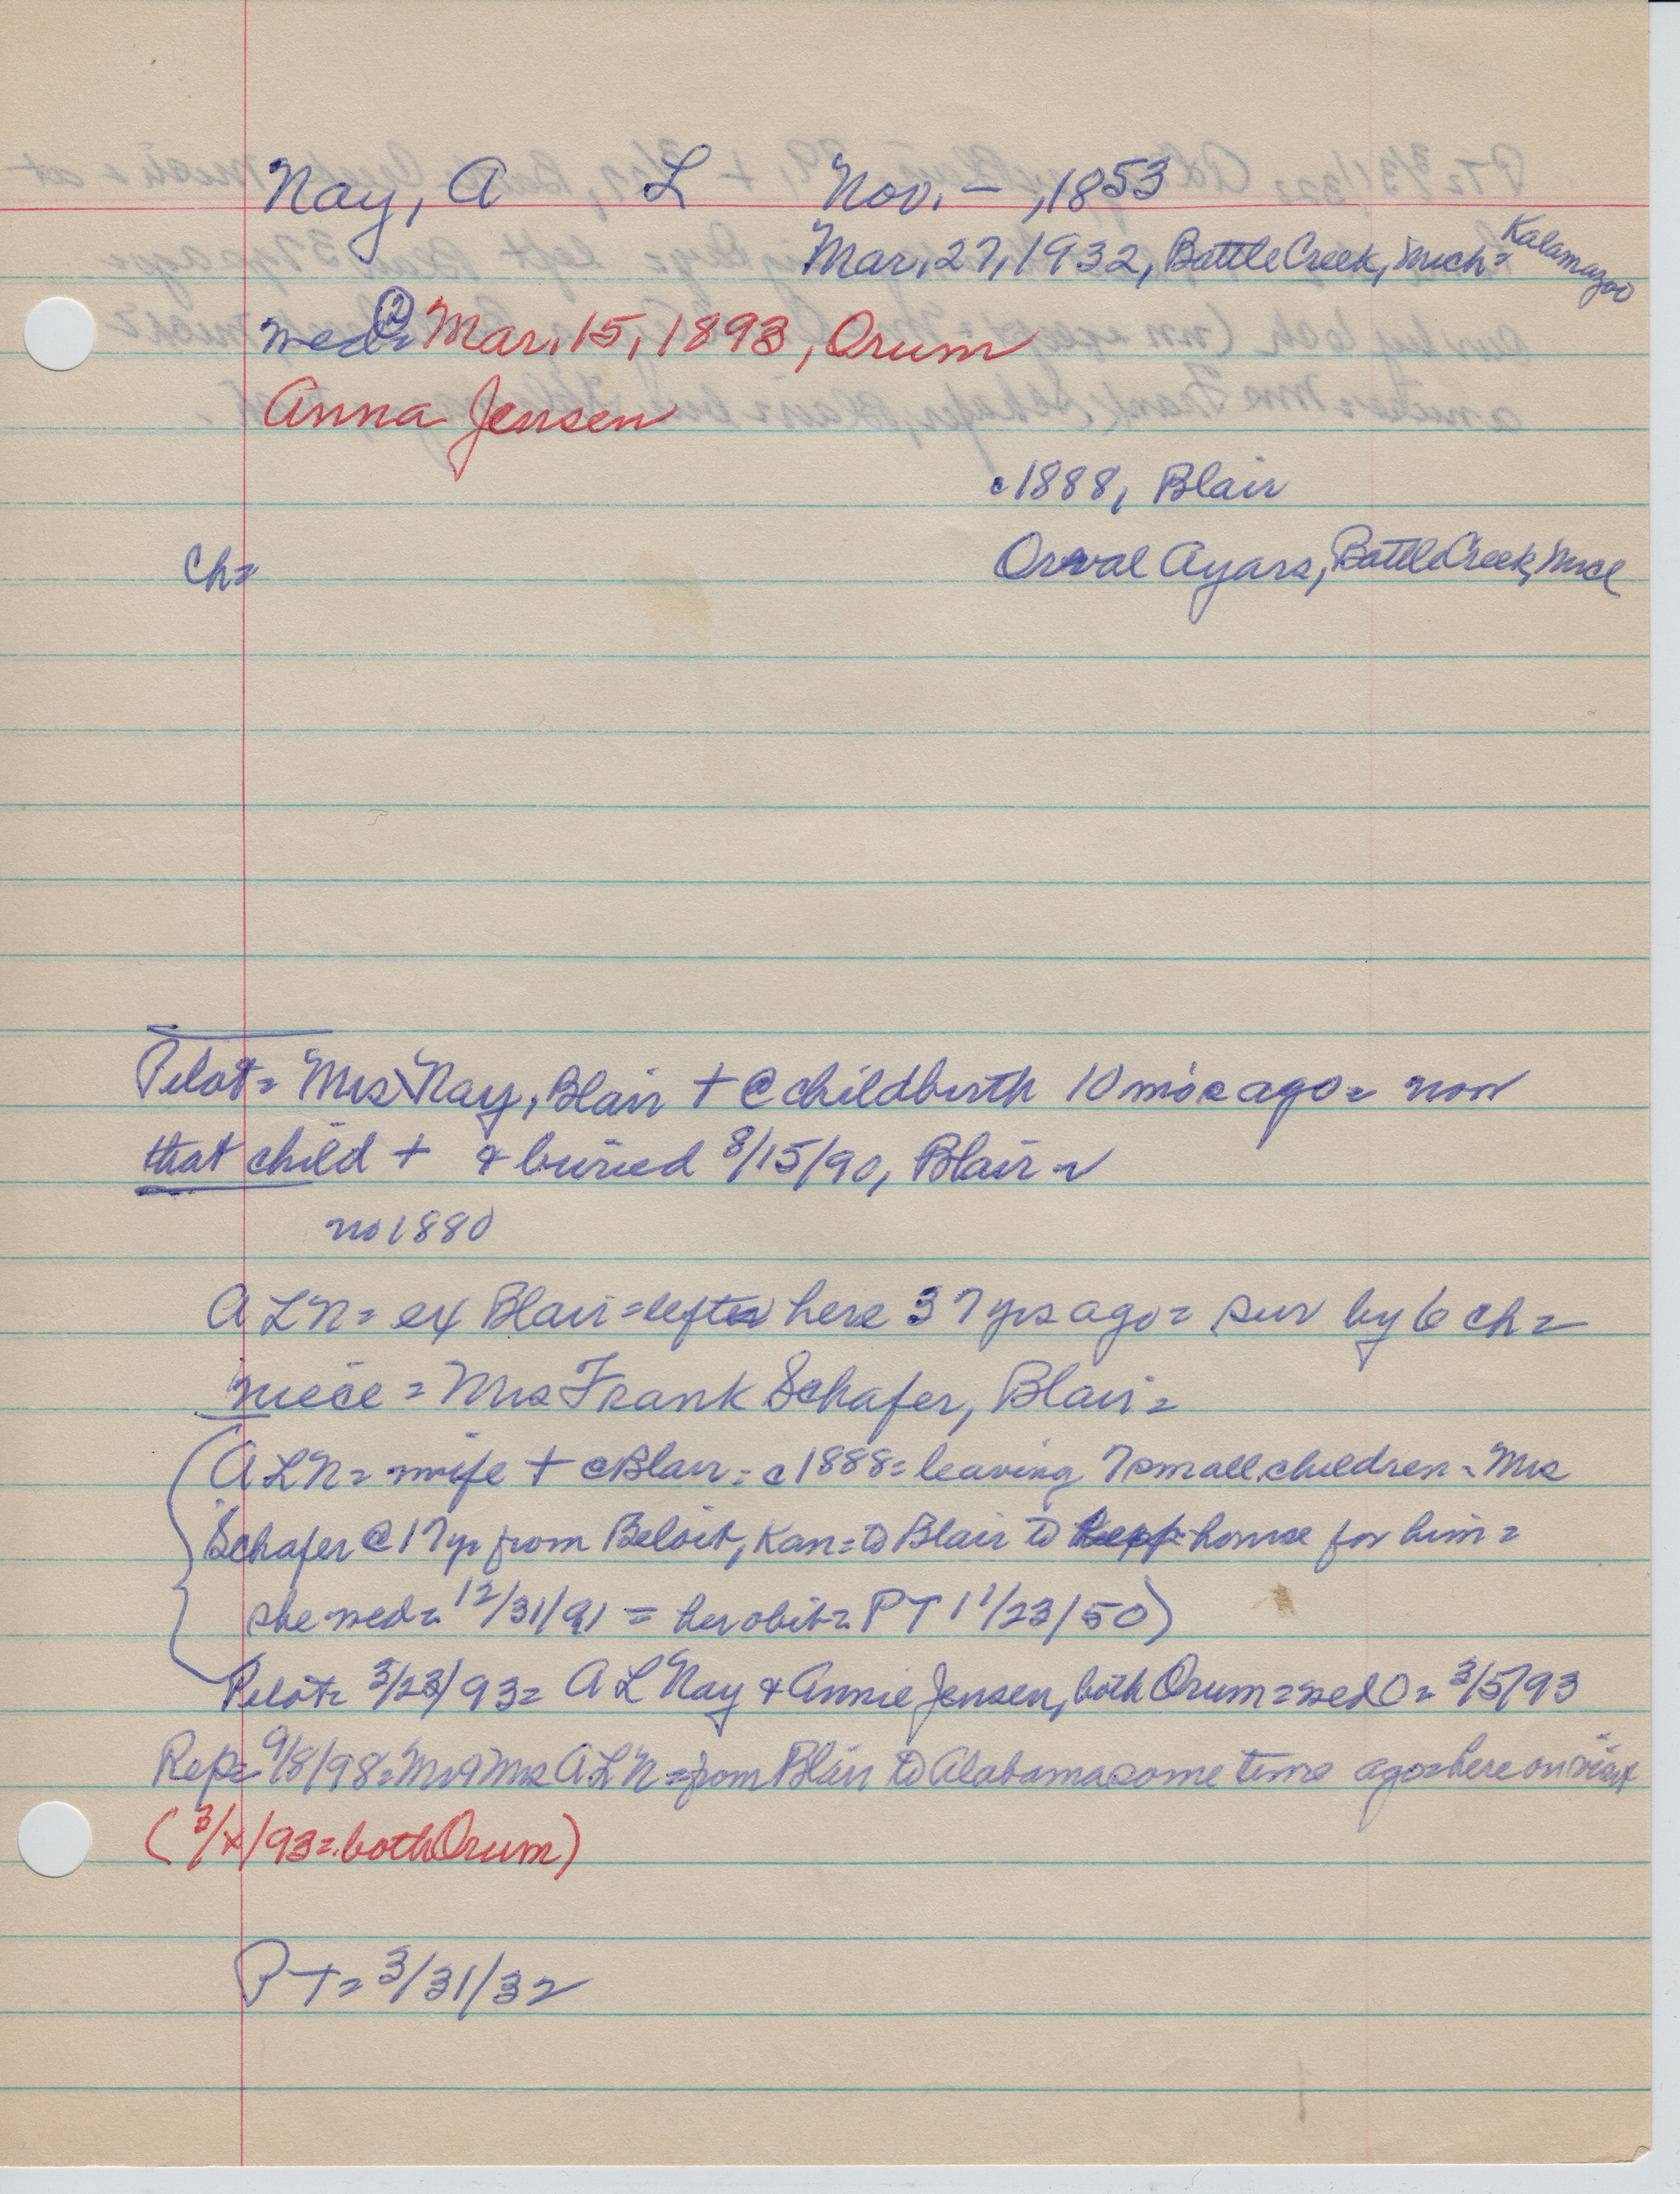 Nay, A L Nov. –, 1853
Mar, 27, 1932, Battle Creek, Mich = Kalamazoo
wed ② = Mar, 15, 1893, Orum
Anna Jensen
c 1888, Blair
Ch =
Orval Ayars, Battle Creek, Mich
Pilot = Mrs Nay, Blair + @ childbirth 10 mos ago = now
that child + & buried 8/15/90, Blair ~
no 1880
A L N = ex Blair = left here 37 yrs ago = sur by 6 ch =
niece = Mrs Frank Schafer, Blair =
(A L N = wife + @ Blair = c 1888 = leaving 7 small children ~ Mrs
Schafer @ 17 yr from Beloit, Kan = to Blair to keep house for him =
she wed = 12/31/91 = her obit = PT 11/23/50)
Pilot = 3/23/93 = A L Nay & Annie Jensen, both Orum = wed O = 3/5/93
Rep = 9/8/98 = Mr & Mrs A L N = from Blair to Alabama some time ago = here on visit
(3/x/93 = both Orum)
PT = 3/31/32